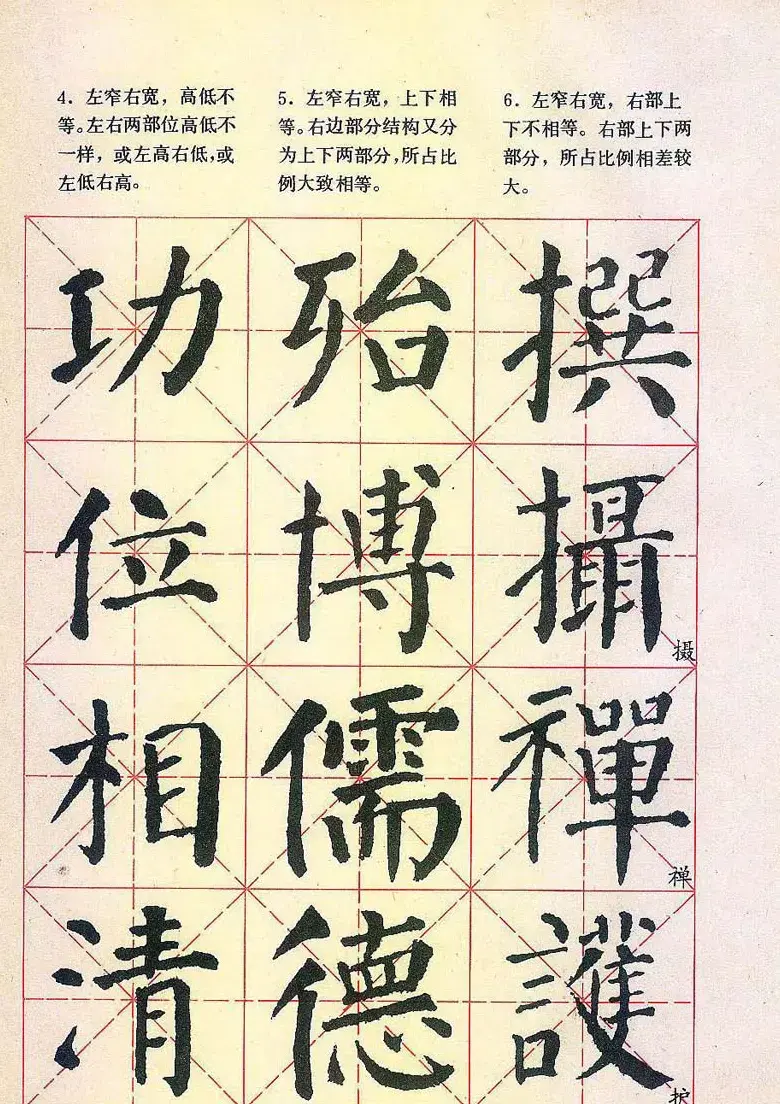 4．左窄右宽，高低不
等。左右两部位高低不
一样，或左高右低，或
左低右高。
5．左窄右宽，上下相
等。右边部分结构又分
为上下两部分，所占比
例大致相等。
6．左窄右宽，右部上
下不相等。右部上下两
部分，所占比例相差较
大。
功 殆 撰
位 博 攝
摄
相 儒 禪
禅
清 德 護
护